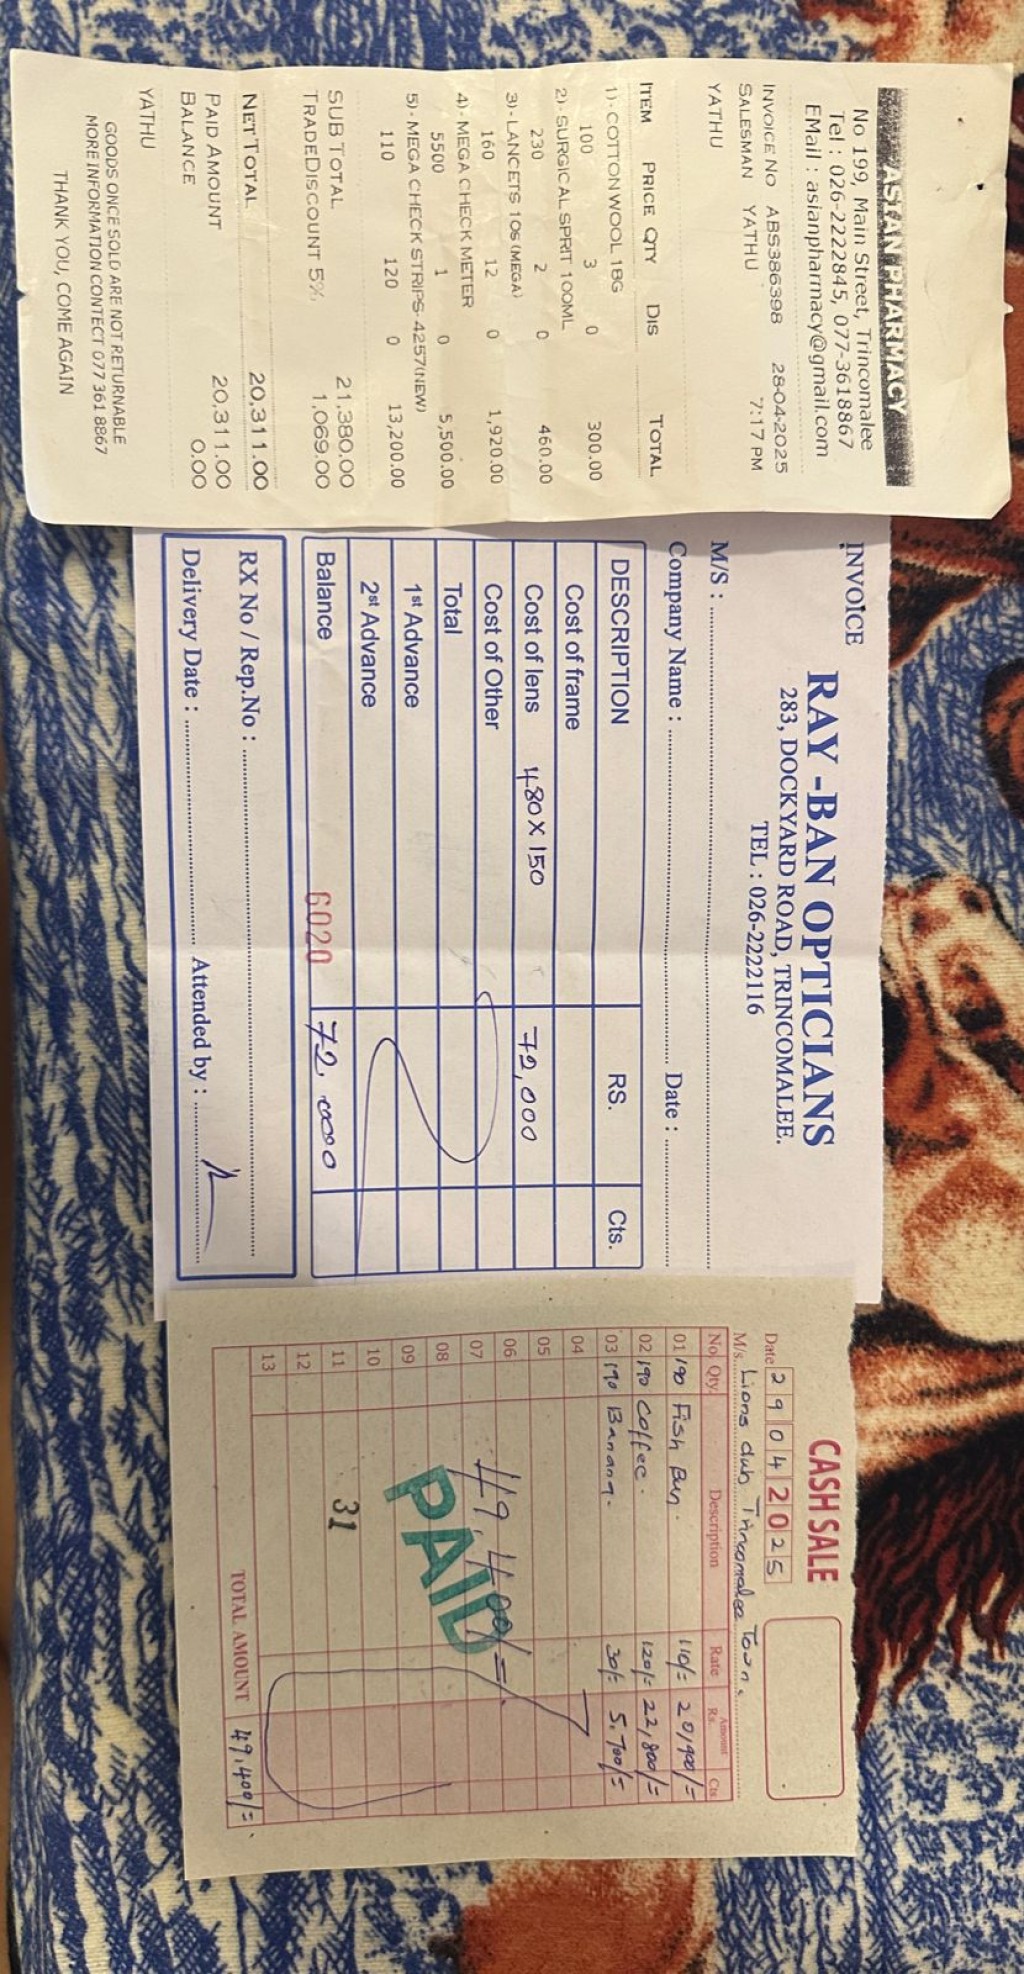 ASIAN PHARMACY
No 199, Main Street, Trincomalee
Tel : 026-2222845, 077-3618867
EMail : asianpharmacy@gmail.com
INVOICE NO ABS386398 28-04-2025
SALESMAN YATHU 7:17 PM
YATHU
ITEM PRICE QTY DIS TOTAL
1)-COTTON WOOL 18G
100 3 0 300.00
2)-SURGICAL SPRIT 100ML
230 2 0 460.00
3)-LANCETS 10S (MEGA)
160 12 0 1,920.00
4)-MEGA CHECK METER
5500 1 0 5,500.00
5)-MEGA CHECK STRIPS-4257(NEW)
110 120 0 13,200.00
SUB TOTAL 21,380.00
TRADEDISCOUNT 5% 1,069.00
NET TOTAL 20,311.00
PAID AMOUNT 20,311.00
BALANCE 0.00
YATHU
GOODS ONCE SOLD ARE NOT RETURNABLE
MORE INFORMATION CONTECT 077 361 8867
THANK YOU, COME AGAIN
INVOICE
RAY -BAN OPTICIANS
283, DOCKYARD ROAD, TRINCOMALEE.
TEL : 026-2222116
M/S :
Company Name : Date :
DESCRIPTION RS. Cts.
Cost of frame
Cost of lens 480 X 150 72,000
Cost of Other
Total
1st Advance
2st Advance
Balance 6020 72,000
RX No / Rep.No :
Delivery Date : Attended by :
CASH SALE
Date 29 04 2025
M/s. Lions club Trincomalee Town.
No Qty. Description Rate Amount Rs. Cts
01 190 Fish Bun. 110/= 20,900/=
02 190 Coffee. 120/= 22,800/=
03 190 Banana. 30/= 5,700/=
04
05
06
07 49,400/=.
08 PAID
09
10
11 31
12
13
TOTAL AMOUNT 49,400/=.